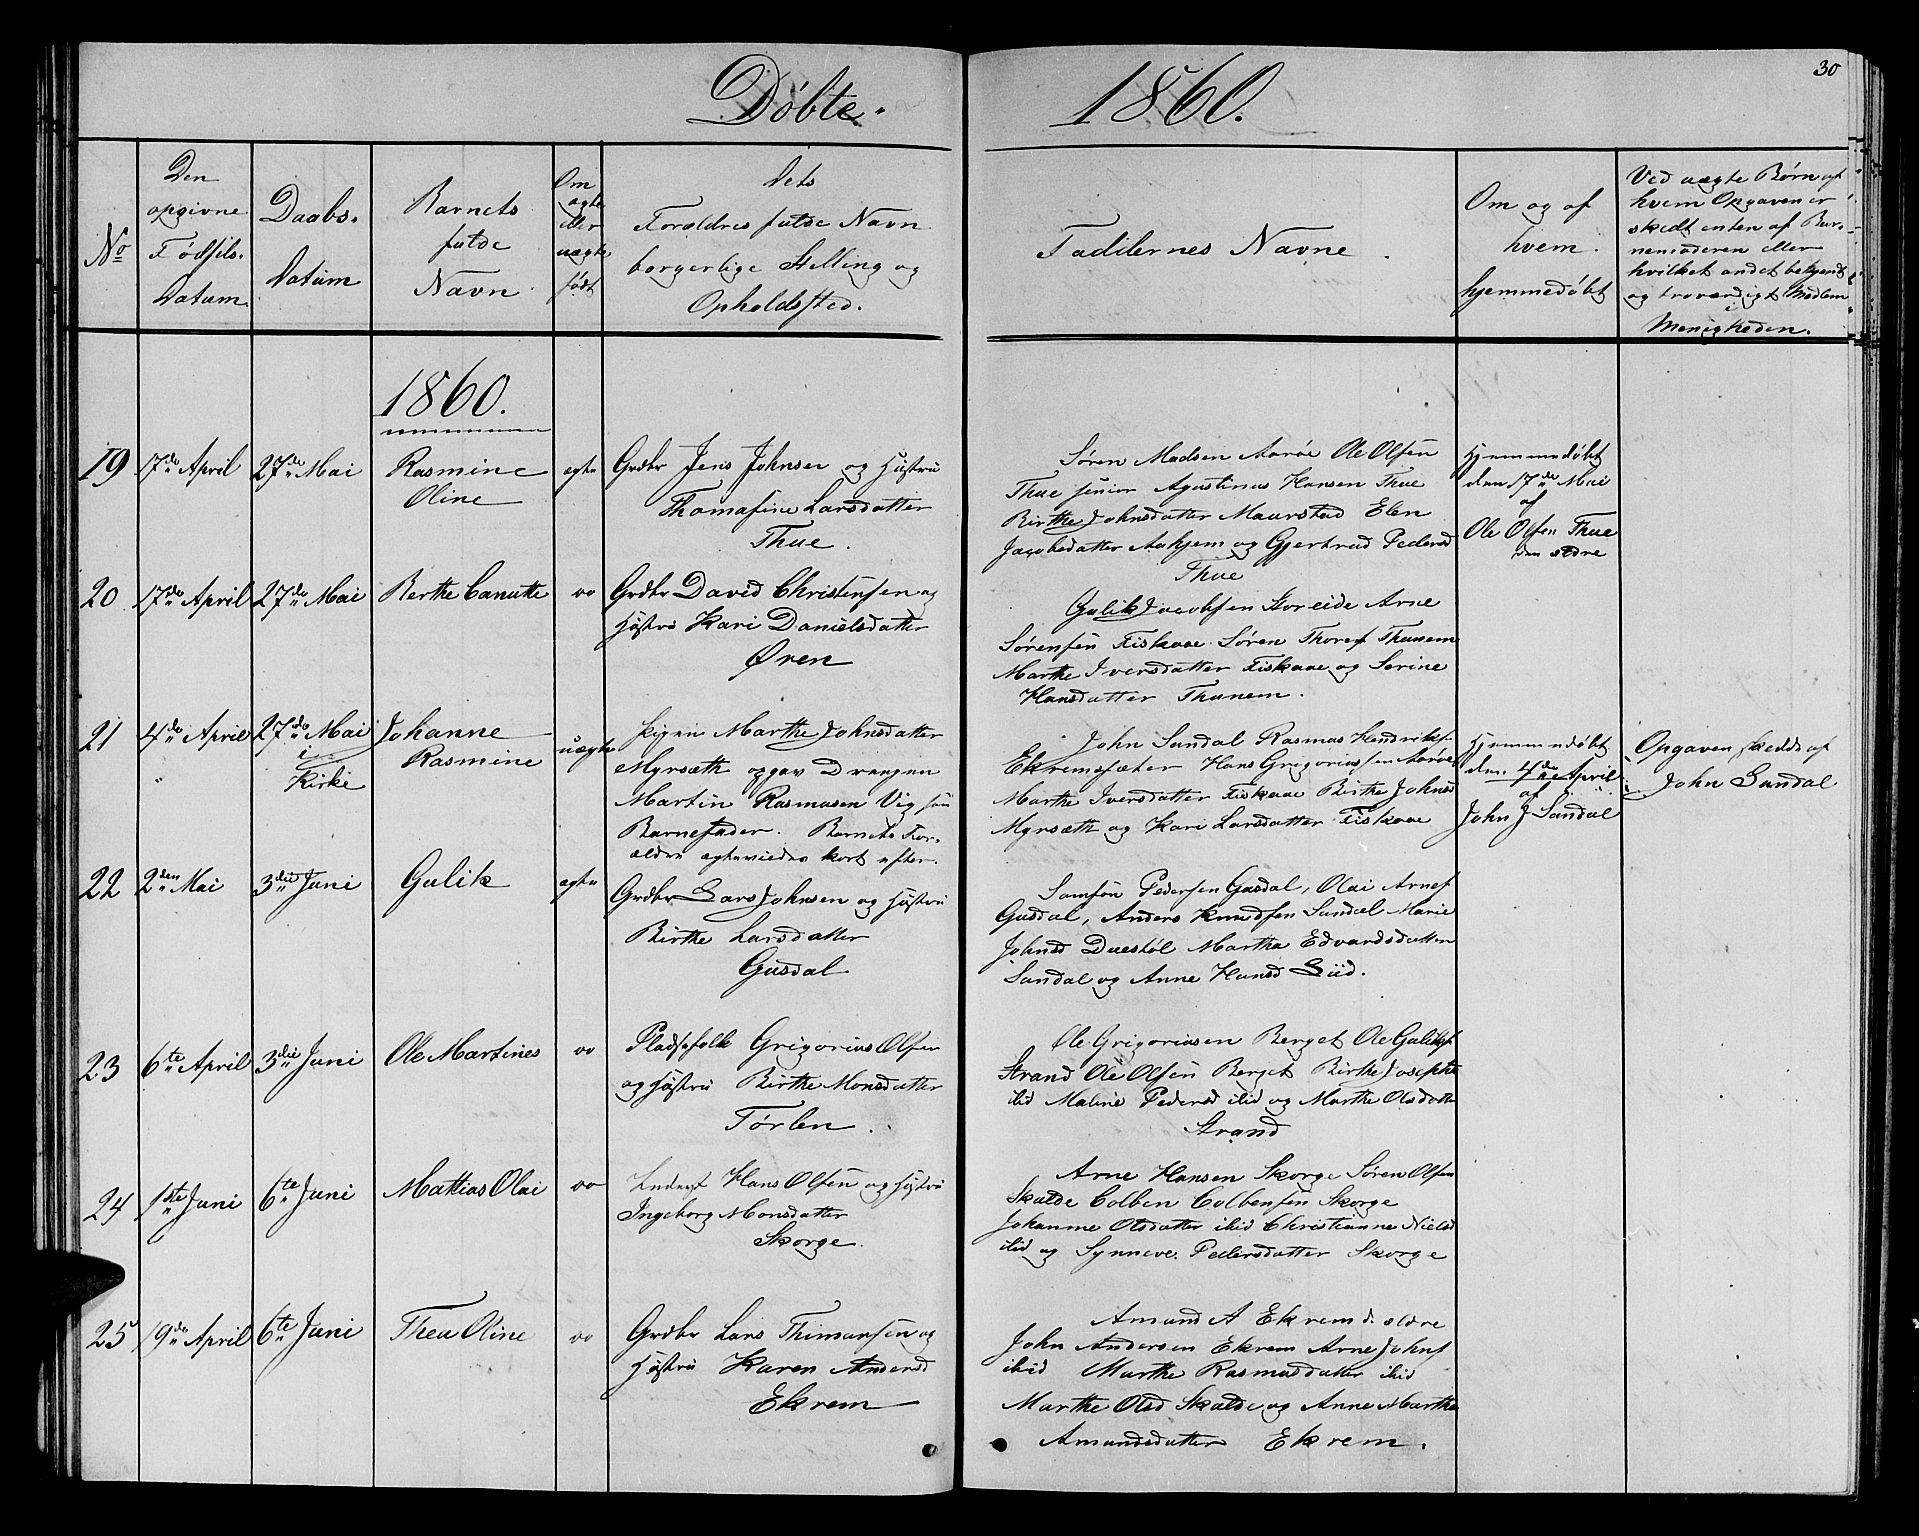 Døbte.
1860.
30
No
Den
opgivne
Fødsels-
Datum
Daabs-
Datum
Barnets
fulde
Navn
Om
ægte
eller
uægte
født
dets
Forældres fulde Navn
borgerlige Stilling og
Opholdssted.
Faddernes Navne.
Om og af
hvem
hjemmedøbt
Ved uægte Børn af
hvem Opgaven er
skedt enten af Bar-
nemoderen eller
hvilket andet bekjendt
og troværdigt Medlem
i
Menigheden.
1860.
19
17de April
27de Mai
Rasmine
Oline
ægte
Grdbr Jens Johnsen og Hustru
Thomasine Larsdatter
Thue.
Søren Madsen Aarøe Ole Olsen
Thue senior Agustinus Hansen Thue
Birthe Johnsdatter Maurstad Elen
Jacobsdatter Aahjem og Gjertrud Pedersd
Thue
Hjemmedøbt
den 17de Mai
af
Ole Olsen Thue
den ældre
20
17de April
27de Mai
Berthe Canutte
oo
Grdbr David Christensen og
Hustru Kari Danielsdatter
Øren
Gulik Jacobsen Storeide Arne
Sørensen Fiskaae Søren Thores Thunem
Marthe Iversdatter Fiskaae og Serine
Hansdatter Thunem.
21
4de April
27de Mai
i
Kirke
Johanne
Rasmine
uægte
Pigen Marthe Johnsdatter
Myrsæth opgav Drengen
Martin Rasmusen Vig som
Barnefader. Barnets For-
ældre ægteviedes kort efter.
John Sandal Rasmus Hendriks.
Ekremsæter Hans Grigoriussen Aarøe
Marthe Iversdatter Fiskaae Birthe Johnsd
Myrsæth og Kari Larsdatter Fiskaae
Hjemmedøbt
den 4de April
af
John J Sandal
Opgaven skedde af
John Sandal
22
2den Mai
3die Juni
Gulik
ægte
Grdbr Lars Johnsen og Hustru
Birthe Larsdatter
Gusdal
Samson Pedersen Gusdal, Olai Arnes
Gusdal, Anders Knudsen Sandal Marie
Johnsd Duestøl Martha Edvardsdatter
Sandal og Anne Hansd Liid.
23
6te April
3die Juni
Ole Martines
oo
Pladsefolk Grigorius Olsen
og Hustru Birthe Monsdatter
Tørlen.
Ole Grigoriusen Berget Ole Guliks
Strand Ole Olsen Berget Birthe Josephs
ibid Maline Pedersd ibid og Marthe Olsdatter
Strand
24
1ste Juni
6te Juni
Mattias Olai
oo
Inderst Hans Olsen og Hustru
Ingeborg Monsdatter
Skorge.
Arne Hansen Skorge Søren Olsen
Skalde Colben Colbensen Skorge
Johanne Olsdatter ibid Christianne Nielsd
ibid og Synneve Pedersdatter Skorge
25
19de April
6te Juni
Thea Oline
oo
Grdbr Lars Thimansen og
Hustru Karen Andersd
Ekrem
Amund A Ekrem d. ældre
John Andersen Ekrem Arne Johns
ibid Marthe Rasmusdatter ibid
Marthe Olsd Skalde og Anne Marthe
Amundsdatter Ekrem.